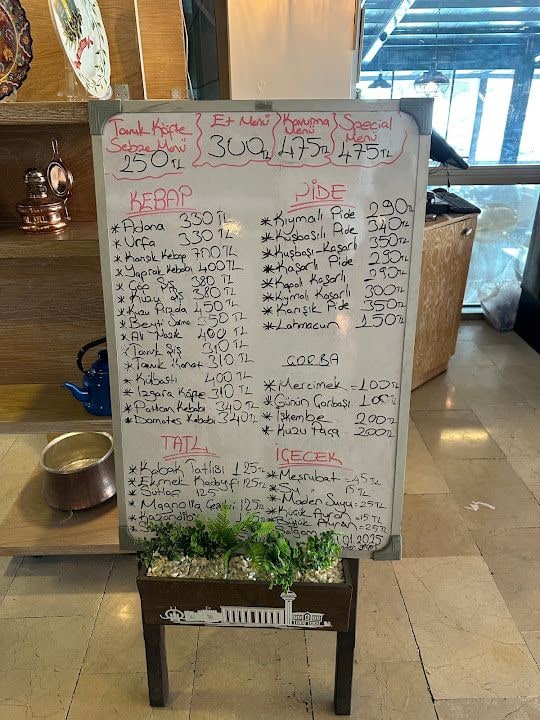 Tavuk Köfte Sebze Menü 250 TL
Et Menü 300 TL
Kavurma Menü 475 TL
Special Menü 475 TL
KEBAP
* Adana 330 TL
* Urfa 330 TL
* Karışık Kebap 700 TL
* Yaprak Kebabı 400 TL
* Çöp Şiş 380 TL
* Kuzu Şiş 380 TL
* Kuzu Pirzola 450 TL
* Beyti Sarma 350 TL
* Ali Nazik 400 TL
* Tavuk Şiş 310 TL
* Tavuk Kanat 310 TL
* Külbastı 400 TL
* Izgara Köfte 310 TL
* Patlıcan Kebabı 340 TL
* Domates Kebabı 340 TL
PİDE
* Kıymalı Pide 290 TL
* Kuşbaşılı Pide 340 TL
* Kuşbaşı-Kaşarlı 350 TL
* Kaşarlı Pide 290 TL
* Kapalı Kaşarlı 290 TL
* Kıymalı Kaşarlı 300 TL
* Karışık Pide 350 TL
* Lahmacun 150 TL
ÇORBA
* Mercimek = 100 TL
* Günün Çorbası 100 TL
* İşkembe 200 TL
* Kuzu Paça 200 TL
TATLI
* Kabak Tatlısı 125 TL
* Ekmek Kadayıfı 125 TL
* Sütlaç 125
* Magnolya Çeşidi 125 TL
İÇECEK
* Meşrubat = 45 TL
* Su 15 TL
* Maden Suyu = 25 TL
* Küçük Ayran = 15 TL
* Büyük Ayran = 25 TL